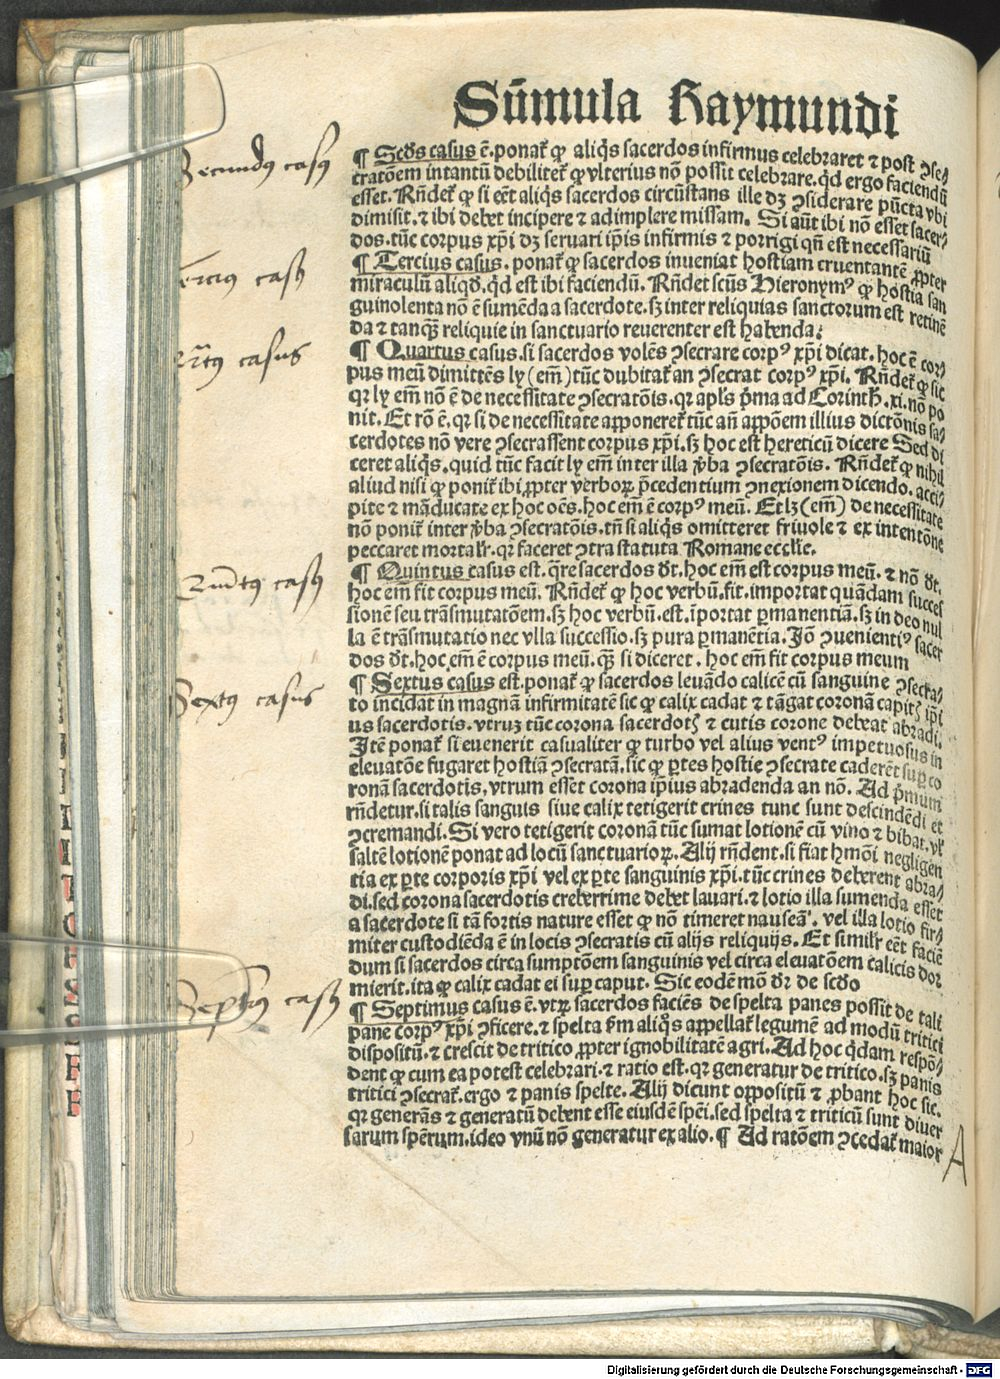 Sūmula Raymundi
Secundus casus
¶ Scd̄s casus ē. ponat̄ ꝙ aliq̄s sacerdos infirmus celebraret ⁊ post ꝯse⸗
cratōem intantū debilitet̄ ꝙ vlterius nō possit celebrare. qd̄ ergo faciendū
esset. Rn̄det̄ ꝙ si eēt aliq̄s sacerdos circūstans ille dꝫ ꝯsiderare pūcta vbi
dimisit. ⁊ ibi debet incipere ⁊ adimplere missam. Si aūt ibi nō esset sacer⸗
dos. tūc corpus xp̄i dꝫ seruari ip̄is infirmis ⁊ porrigi qn̄ est necessariū
Tercius casus
¶ Tercius casus. ponat̄ ꝙ sacerdos inueniat hostiam cruentantē ꝓpter
miraculū aliqd̄. qd̄ est ibi faciendū. Rn̄det scūs Hieronymꝰ ꝙ hostia san
guinolenta nō ē sumēda a sacerdote. sꝫ inter reliquias sanctorum est retinē
da ⁊ tanꝙ̄ reliquie in sanctuario reuerenter est habenda:
Quartus casus
¶ Quartus casus. si sacerdos volēs ꝯsecrare corpꝰ xp̄i dicat. hoc ē cor⸗
pus meū dimittēs ly (em̄) tūc dubitat̄ an ꝯsecrat corpꝰ xp̄i. Rn̄det̄ ꝙ sic
qr ly em̄ nō ē de necessitate ꝯsecratōis. qr apl̄s p̄ma ad Corinth̄. xi. nō po
nit. Et rō ē. qr si de necessitate apponeret̄ tūc an̄ appōem illius dictōnis sa⸗
cerdotes nō vere ꝯsecrassent corpus xp̄i. sꝫ hoc est hereticū dicere Sed di
ceret aliq̄s. quid tūc facit ly em̄ inter illa v̄ba ꝯsecratōis. Rn̄det̄ ꝙ nihil
aliud nisi ꝙ ponit̄ ibi ꝓpter verboꝝ p̄cedentium ꝯnexionem dicendo. acci⸗
pite ⁊ māducate ex hoc oēs. hoc em̄ ē corpꝰ meū. Et lꝫ (em̄) de necessitate
nō ponit̄ inter v̄ba ꝯsecratōis. tn̄ si aliq̄s omitteret friuole ⁊ ex intentōne
peccaret mortalr̄. qr faceret ꝯtra statuta Romane eccl̄ie.
Quintus casus
¶ Quintus casus est. q̄re sacerdos d̄t. hoc em̄ est corpus meū. ⁊ nō d̄t.
hoc em̄ fit corpus meū. Rn̄det̄ ꝙ hoc verbū. fit. importat quādam succes
sionē seu trāsmutatōem. sꝫ hoc verbū. est. īportat ꝑmanentiā. sꝫ in deo nul
la ē trāsmutatio nec vlla successio. sꝫ pura ꝑmanētia. Jō ꝯuenientiꝰ sacer
dos d̄t. hoc em̄ ē corpus meū. ꝙ̄ si diceret. hoc em̄ fit corpus meum
Sextus casus
¶ Sextus casus est. ponat̄ ꝙ sacerdos leuādo calicē cū sanguine ꝯsecra⸗
to incidat in magnā infirmitatē sic ꝙ calix cadat ⁊ tāgat coronā capitꝭ ip̄i
us sacerdotis. vtruꝫ tūc corona sacerdotꝭ ⁊ cutis corone debeat abradi.
Jtē ponat̄ si euenerit casualiter ꝙ turbo vel alius ventꝰ impetuosus in
eleuatōe fugaret hostiā ꝯsecratā. sic ꝙ ꝑtes hostie ꝯsecrate caderēt suꝑ co
ronā sacerdotis, vtrum esset corona ip̄ius abradenda an nō. Ad p̄mum
rn̄detur. si talis sanguis siue calix tetigerit crines tunc sunt descindēdi et
ꝯcremandi. Si vero tetigerit coronā tūc sumat lotionē cū vino ⁊ bibat. vl̄
saltē lotionē ponat ad locū sanctuarioꝝ. Alij rn̄dent. si fiat hmōi negligen
tia ex ꝑte corporis xp̄i vel ex ꝑte sanguinis xp̄i. tūc crines deberent abra⸗
di. sed corona sacerdotis creberrime debet lauari. ⁊ lotio illa sumenda esset
a sacerdote si tā fortis nature esset ꝙ nō timeret nauseā. vel illa lotio fir⸗
miter custodiēda ē in locis ꝯsecratis cū alijs reliquijs. Et similr̄ eēt faciē
dum si sacerdos circa sumptōem sanguinis vel circa eleuatōem calicis dor
mierit. ita ꝙ calix cadat ei suꝑ caput. Sic eodē mō d̄r de scd̄o
Septimus casus
¶ Septimus casus ē. vtꝝ sacerdos faciēs de spelta panes possit de tali
pane corpꝰ xp̄i ꝯficere. ⁊ spelta fm̄ aliq̄s appellat̄ legumē ad modū tritici
dispositū. ⁊ crescit de tritico ꝓpter ignobilitatē agri. Ad hoc qd̄am respō⸗
dent ꝙ cum ea potest celebrari. ⁊ ratio est. qr generatur de tritico. sꝫ panis
tritici ꝯsecrat̄. ergo ⁊ panis spelte. Alij dicunt oppositū ⁊ ꝓbant hoc sic.
qr generās ⁊ generatū debent esse eiusdē spēi. sed spelta ⁊ triticū sunt diuer
sarum spērum. ideo vnū nō generatur ex alio. ¶ Ad ratōem ꝯcedat̄ maior
A
Digitalisierung gefördert durch die Deutsche Forschungsgemeinschaft - DFG